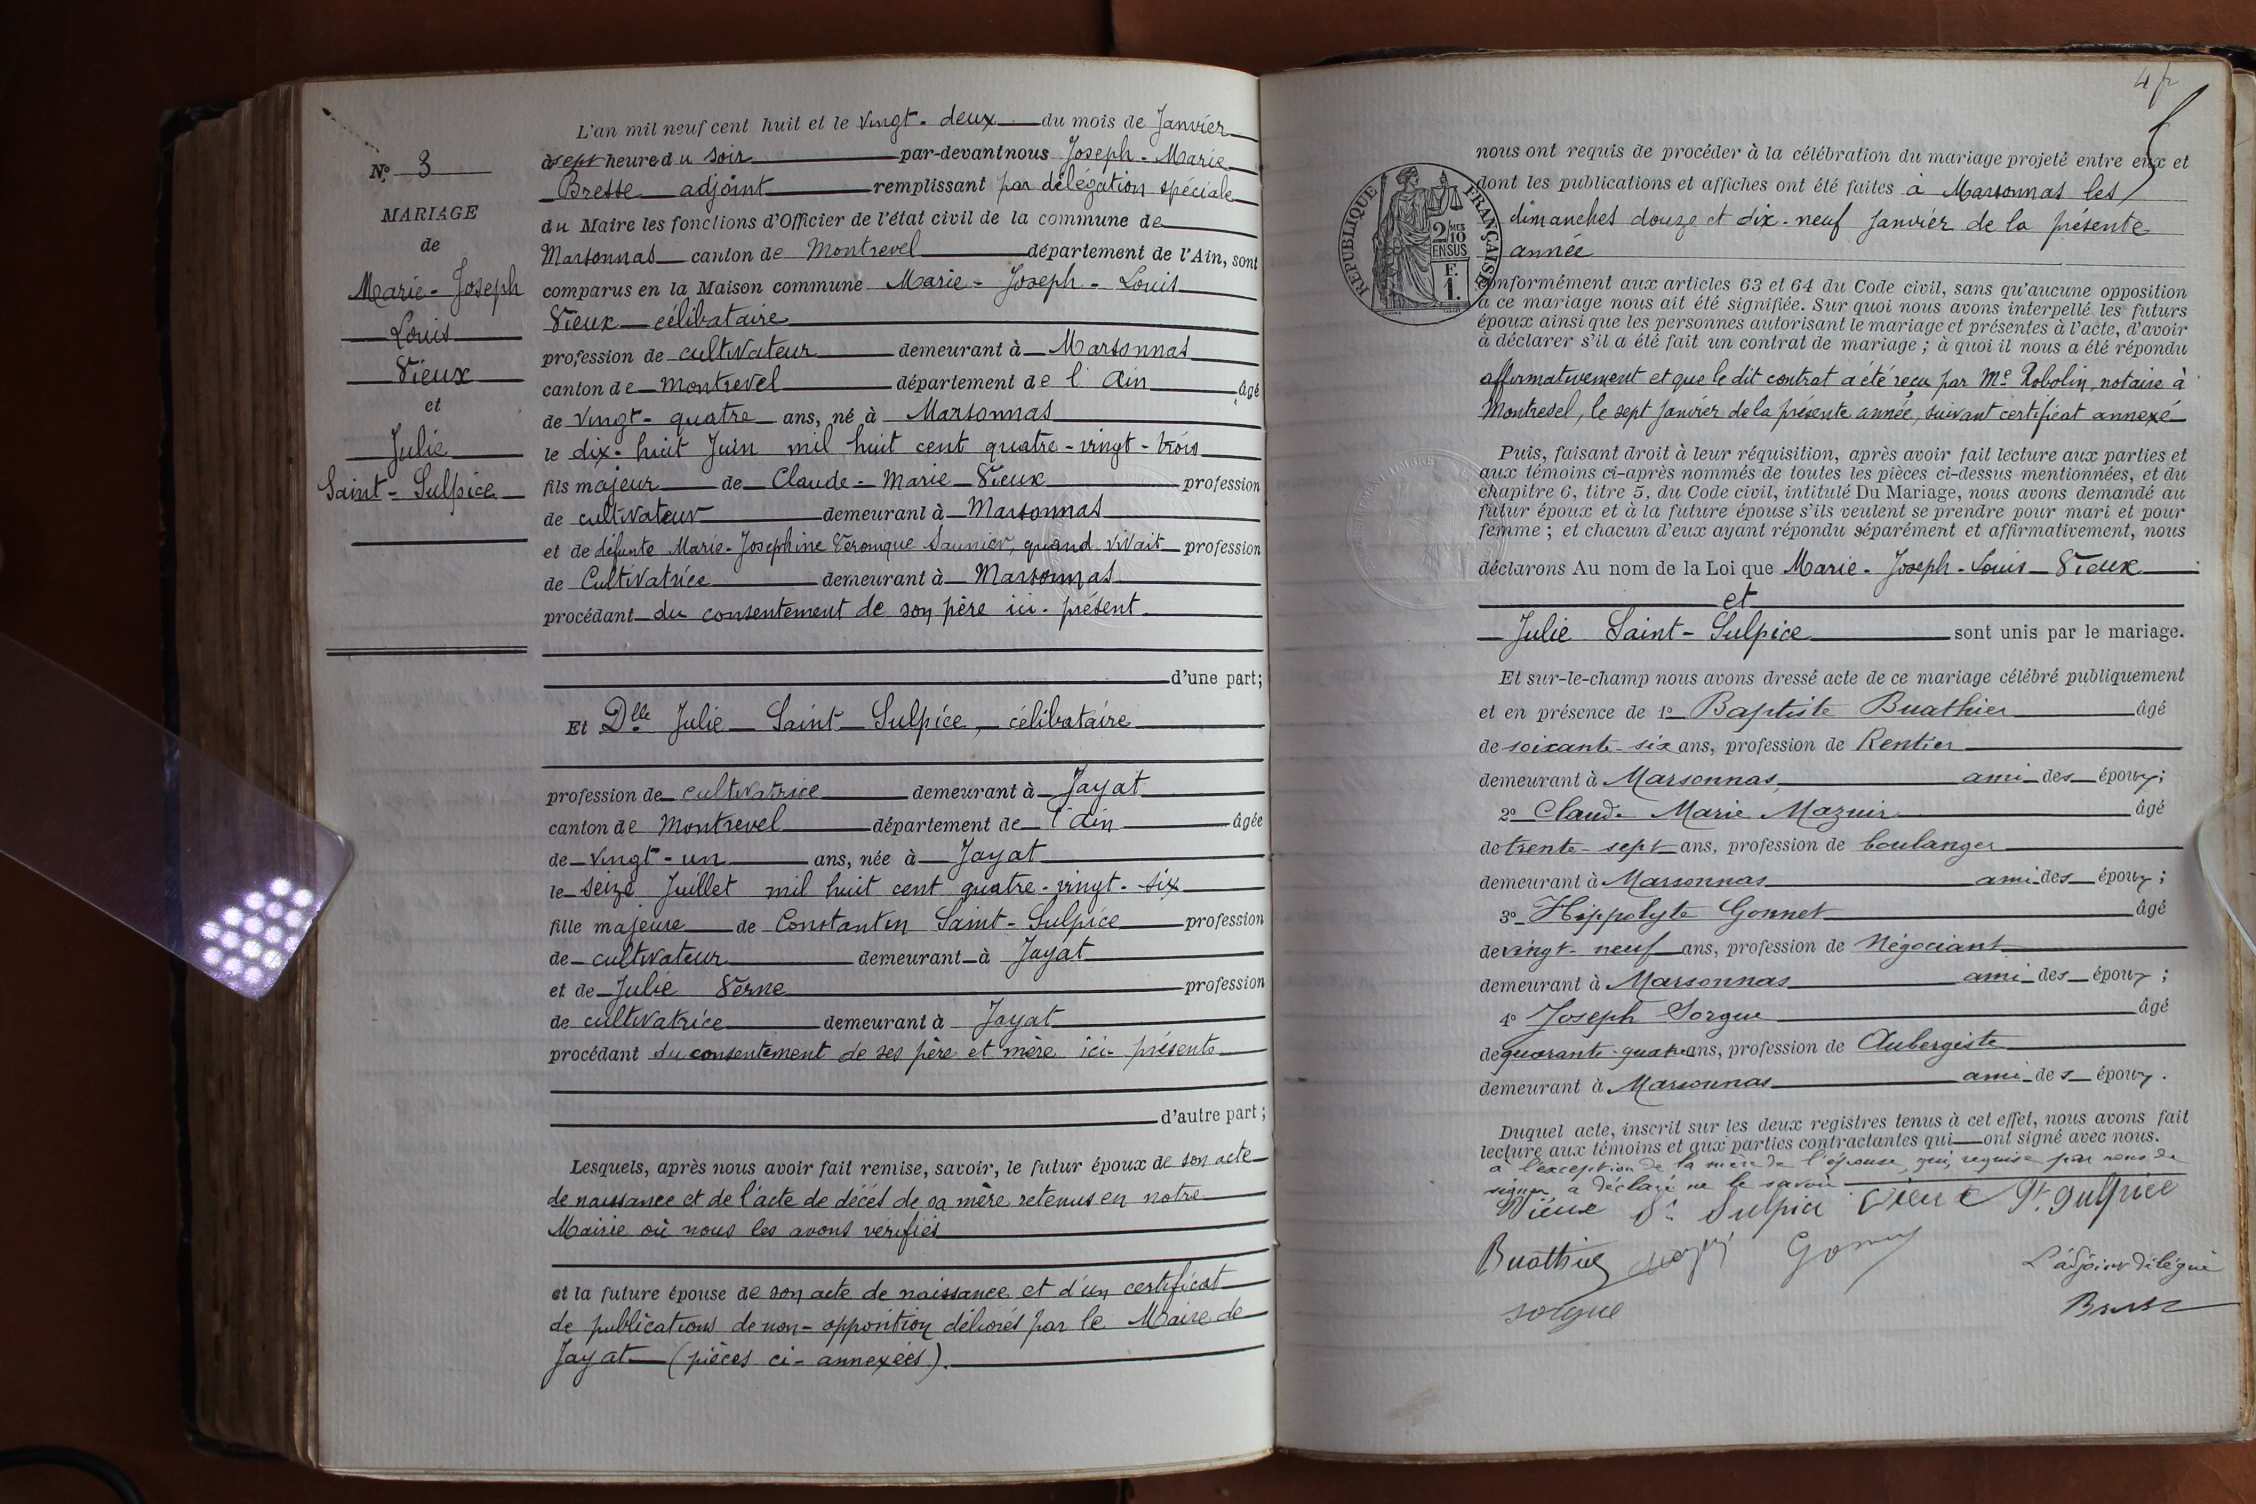 N.º 3
MARIAGE
de
Marie-Joseph
Louis
Vieux
et
Julie
Saint-Sulpice
L'an mil neuf cent huit et le vingt-deux du mois de Janvier
à sept heure du soir par-devant nous Joseph-Marie
Bresse adjoint remplissant par délégation spéciale
du Maire les fonctions d'Officier de l'état civil de la commune de
Marsonnas canton de Montrevel département de l'Ain, sont
comparus en la Maison commune Marie-Joseph-Louis
Vieux célibataire
profession de cultivateur demeurant à Marsonnas
canton de Montrevel département de l'Ain âgé
de vingt-quatre ans, né à Marsonnas
le dix-huit Juin mil huit cent quatre-vingt-trois
fils majeur de Claude-Marie Vieux profession
de cultivateur demeurant à Marsonnas
et de défunte Marie-Josephine Véronique Saunier, quand vivait profession
de Cultivatrice demeurant à Marsonnas
procédant du consentement de son père ici-présent
d'une part;
Et Dlle Julie Saint-Sulpice, célibataire
profession de cultivatrice demeurant à Jayat
canton de Montrevel département de l'Ain âgée
de vingt-un ans, née à Jayat
le seize Juillet mil huit cent quatre-vingt-six
fille majeure de Constantin Saint-Sulpice profession
de cultivateur demeurant à Jayat
et de Julie Verne profession
de cultivatrice demeurant à Jayat
procédant du consentement de ses père et mère ici-présents
d'autre part;
Lesquels, après nous avoir fait remise, savoir, le futur époux de son acte
de naissance et de l'acte de décès de sa mère retenus en notre
Mairie où nous les avons vérifiés
et la future épouse de son acte de naissance et d'un certificat
de publications de non-opposition délivrés par le Maire de
Jayat (pièces ci-annexées).
RÉPUBLIQUE FRANÇAISE
2/10 MES
EN SUS
F.
1.
nous ont requis de procéder à la célébration du mariage projeté entre eux et
dont les publications et affiches ont été faites à Marsonnas les
dimanches douze et dix-neuf Janvier de la présente
année
conformément aux articles 63 et 64 du Code civil, sans qu'aucune opposition
à ce mariage nous ait été signifiée. Sur quoi nous avons interpellé les futurs
époux ainsi que les personnes autorisant le mariage et présentes à l'acte, d'avoir
à déclarer s'il a été fait un contrat de mariage ; à quoi il nous a été répondu
affirmativement et que le dit contrat a été reçu par Me Robolin, notaire à
Montrevel, le sept Janvier de la présente année, suivant certificat annexé
Puis, faisant droit à leur réquisition, après avoir fait lecture aux parties et
aux témoins ci-après nommés de toutes les pièces ci-dessus mentionnées, et du
chapitre 6, titre 5, du Code civil, intitulé Du Mariage, nous avons demandé au
futur époux et à la future épouse s'ils veulent se prendre pour mari et pour
femme ; et chacun d'eux ayant répondu séparément et affirmativement, nous
déclarons Au nom de la Loi que Marie-Joseph-Louis Vieux
et
Julie Saint-Sulpice sont unis par le mariage.
Et sur-le-champ nous avons dressé acte de ce mariage célébré publiquement
et en présence de 1º Baptiste Buathier âgé
de soixante-six ans, profession de Rentier
demeurant à Marsonnas, ami des époux ;
2º Claude Marie Mazuir âgé
de trente-sept ans, profession de boulanger
demeurant à Marsonnas ami des époux ;
3º Hippolyte Gonnet âgé
de vingt-neuf ans, profession de Négociant
demeurant à Marsonnas ami des époux ;
4º Joseph Sorgue âgé
de quarante-quatre ans, profession de Aubergiste
demeurant à Marsonnas ami des époux.
Duquel acte, inscrit sur les deux registres tenus à cet effet, nous avons fait
lecture aux témoins et aux parties contractantes qui ont signé avec nous.
à l'exception de la mère de l'épouse qui, requise par nous de
signer, a déclaré ne le savoir
Vieux St Sulpice Vieux St Sulpice
Buathier Gonnet L'adjoint délégué
Sorgue Bresse